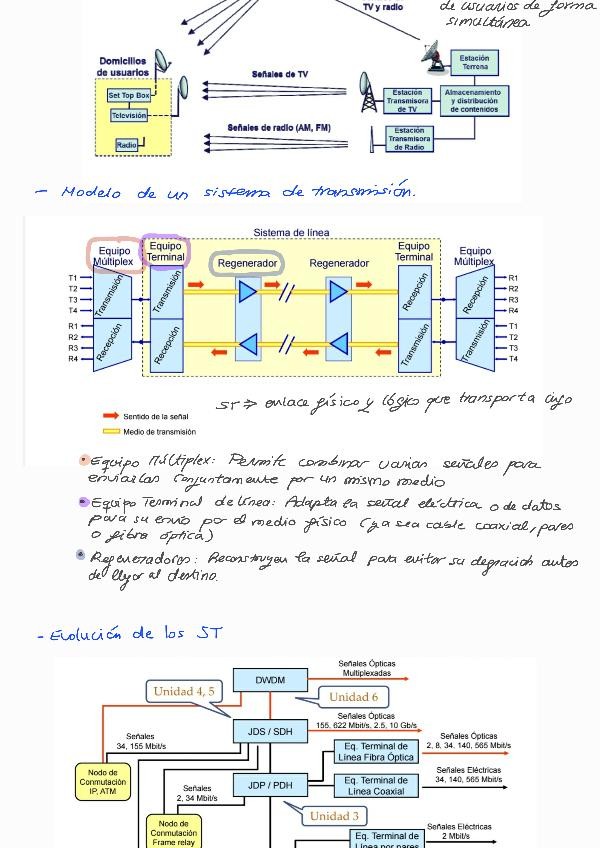 de usuarios de forma
simultánea
TV y radio
Domicilios
de usuarios
Set Top Box
Televisión
Radio
Señales de TV
Señales de radio (AM, FM)
Estación
Terrena
Estación
Transmisora
de TV
Almacenamiento
y distribución
de contenidos
Estación
Transmisora
de Radio
- Modelo de un sistema de transmisión.
Sistema de línea
Equipo
Múltiplex
Equipo
Terminal
Regenerador
Regenerador
Equipo
Terminal
Equipo
Múltiplex
T1
T2
T3
T4
R1
R2
R3
R4
Transmisión
Recepción
Transmisión
Recepción
Recepción
Transmisión
Recepción
Transmisión
R1
R2
R3
R4
T1
T2
T3
T4
Sentido de la señal
Medio de transmisión
ST => enlace físico y lógico que transporta info
• Equipo Múltiplex: Permite combinar varias señales para
enviarlas conjuntamente por un mismo medio
• Equipo Terminal de línea: Adapta la señal eléctrica o de datos
para su envío por el medio físico (ya sea cable coaxial, pares
o fibra óptica)
• Regeneradores: Reconstruyen la señal para evitar su degración antes
de llegar al destino.
- Evolución de los ST
DWDM
Señales Ópticas
Multiplexadas
Unidad 4, 5
Unidad 6
JDS / SDH
Señales Ópticas
155, 622 Mbit/s, 2.5, 10 Gb/s
Señales
34, 155 Mbit/s
Nodo de
Conmutación
IP, ATM
Eq. Terminal de
Línea Fibra Óptica
Señales Ópticas
2, 8, 34. 140, 565 Mbit/s
JDP / PDH
Eq. Terminal de
Línea Coaxial
Señales Eléctricas
34, 140, 565 Mbit/s
Señales
2, 34 Mbit/s
Unidad 3
Nodo de
Conmutación
Frame relay
Eq. Terminal de
Línea por pares
Señales Eléctricas
2 Mbit/s